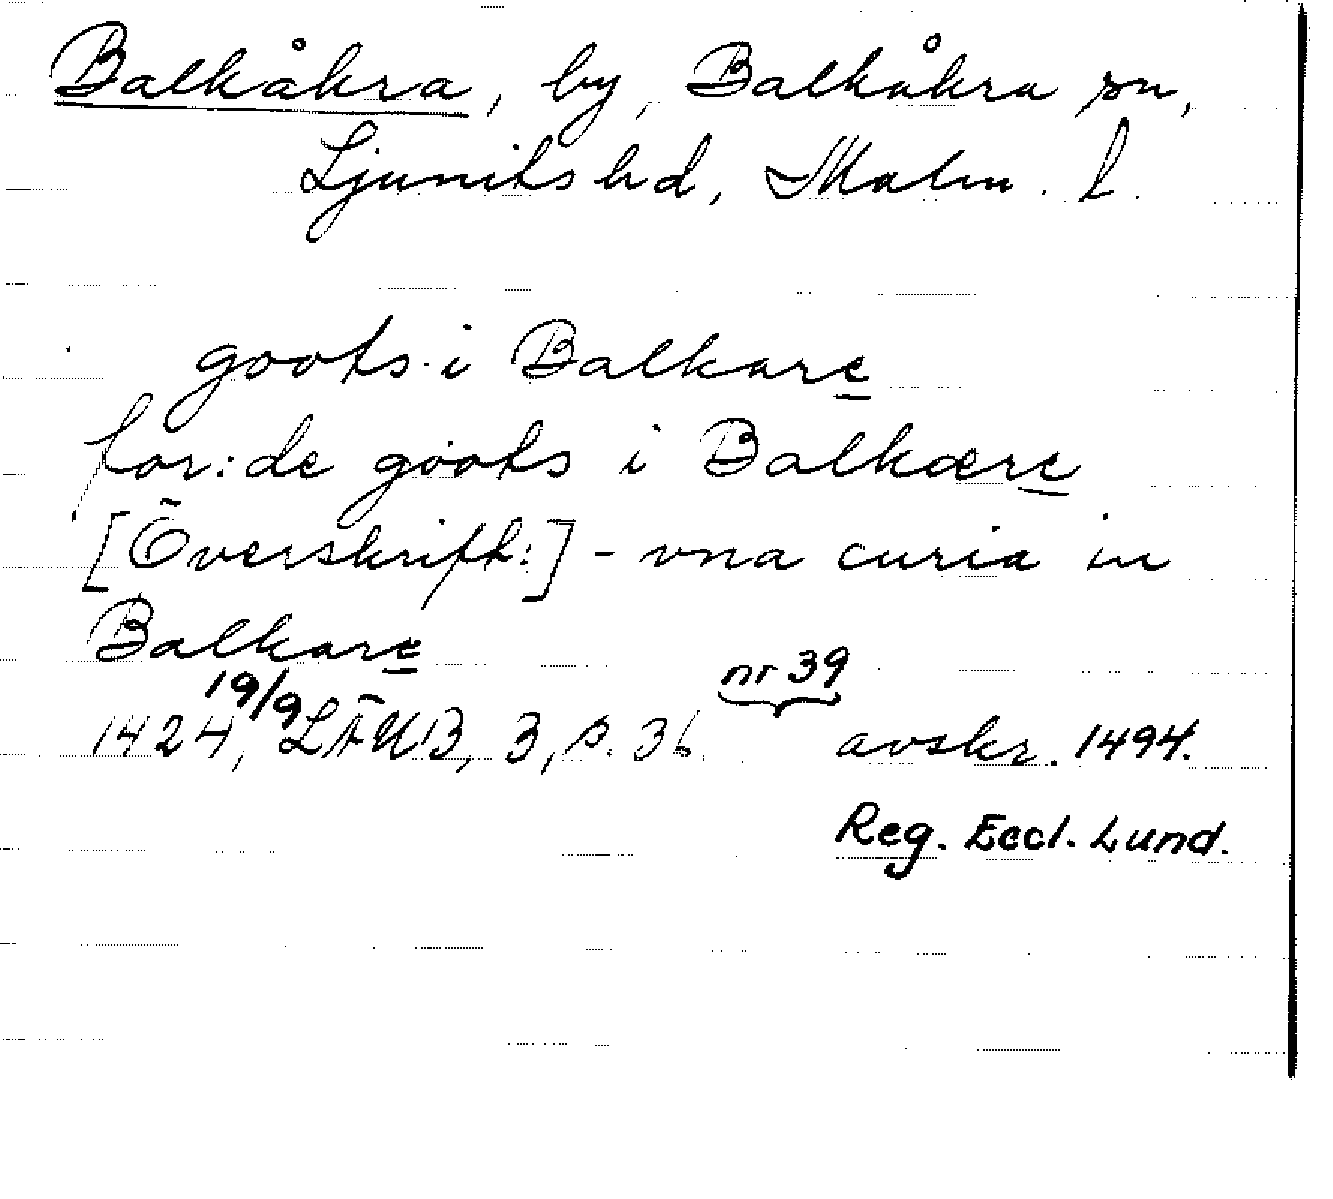 Balkåkra, by, Balkåkra sn,
Ljunits hd, Malm. l.
goots i Balkare
for:de goots i Balkære
[Överskrift:] - vna curia in
Balkare
19/9 nr 39
1424, LÄUB, 3, s. 36. avskr. 1494.
Reg. Eccl. Lund.